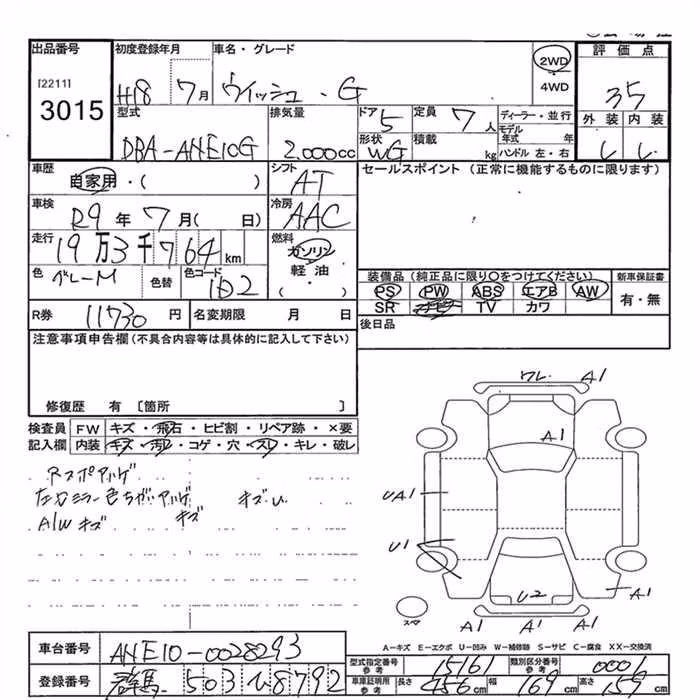 出品番号 初度登録年月 車名・グレード 評価点
[2211] 2WD
3015 H18 7月 ウィッシュ・G 4WD 35
型式 排気量 ドア 5 定員 7人 ディーラー・並行 外装 内装
モデル年式 年
DBA-ANE10G 2,000cc 形状 WG 積載 kg ハンドル 左・右
車歴 自家用・( ) シフト AT セールスポイント (正常に機能するものに限ります)
車検 R9年7月( 日) 冷房 AAC
走行 19万3千764km 燃料 ガソリン
軽油
( ・ )
色 グレーM 色替 色コード 1D2 装備品(純正品に限り○をつけてください) 新車保証書
PS PW ABS エアB AW 有・無
SR ナビ TV カワ
R券 11730円 名変期限 月 日 後日品
注意事項申告欄(不具合内容等は具体的に記入して下さい)
修復歴 有 [箇所 ]
検査員 FW キズ・飛石・ヒビ割・リペア跡・×要
記入欄 内装 キズ・汚レ・コゲ・穴・スレ・キレ・破レ
ワレ A1
A1
Rスポアルゲ
左ドミラー色ちがアルゲ キズU
キズ
A/Wキズ
UA1
U1
U2 A1
スペア A1 A1
A-キズ E-エクボ U-凹み W-補修跡 S-サビ C-腐食 XX-交換済
車台番号 ANE10-0028293
型式指定番号 参考 15161 類別区分番号 参考 0006
登録番号 群馬 503 ひ 8792 車庫証明用 参考 長さ 456cm 幅 169cm 高さ 159cm